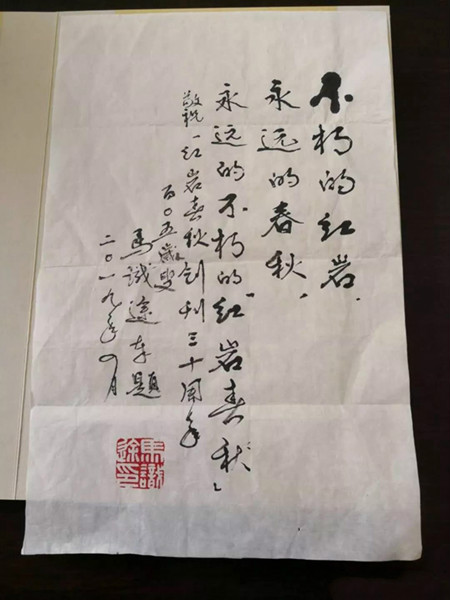 不朽的红岩，
永远的春秋，
永远的不朽的“红岩春秋”
敬祝《红岩春秋》创刊三十周年
百〇五岁叟
马识途 奉题
二〇一九年四月
馬識途印